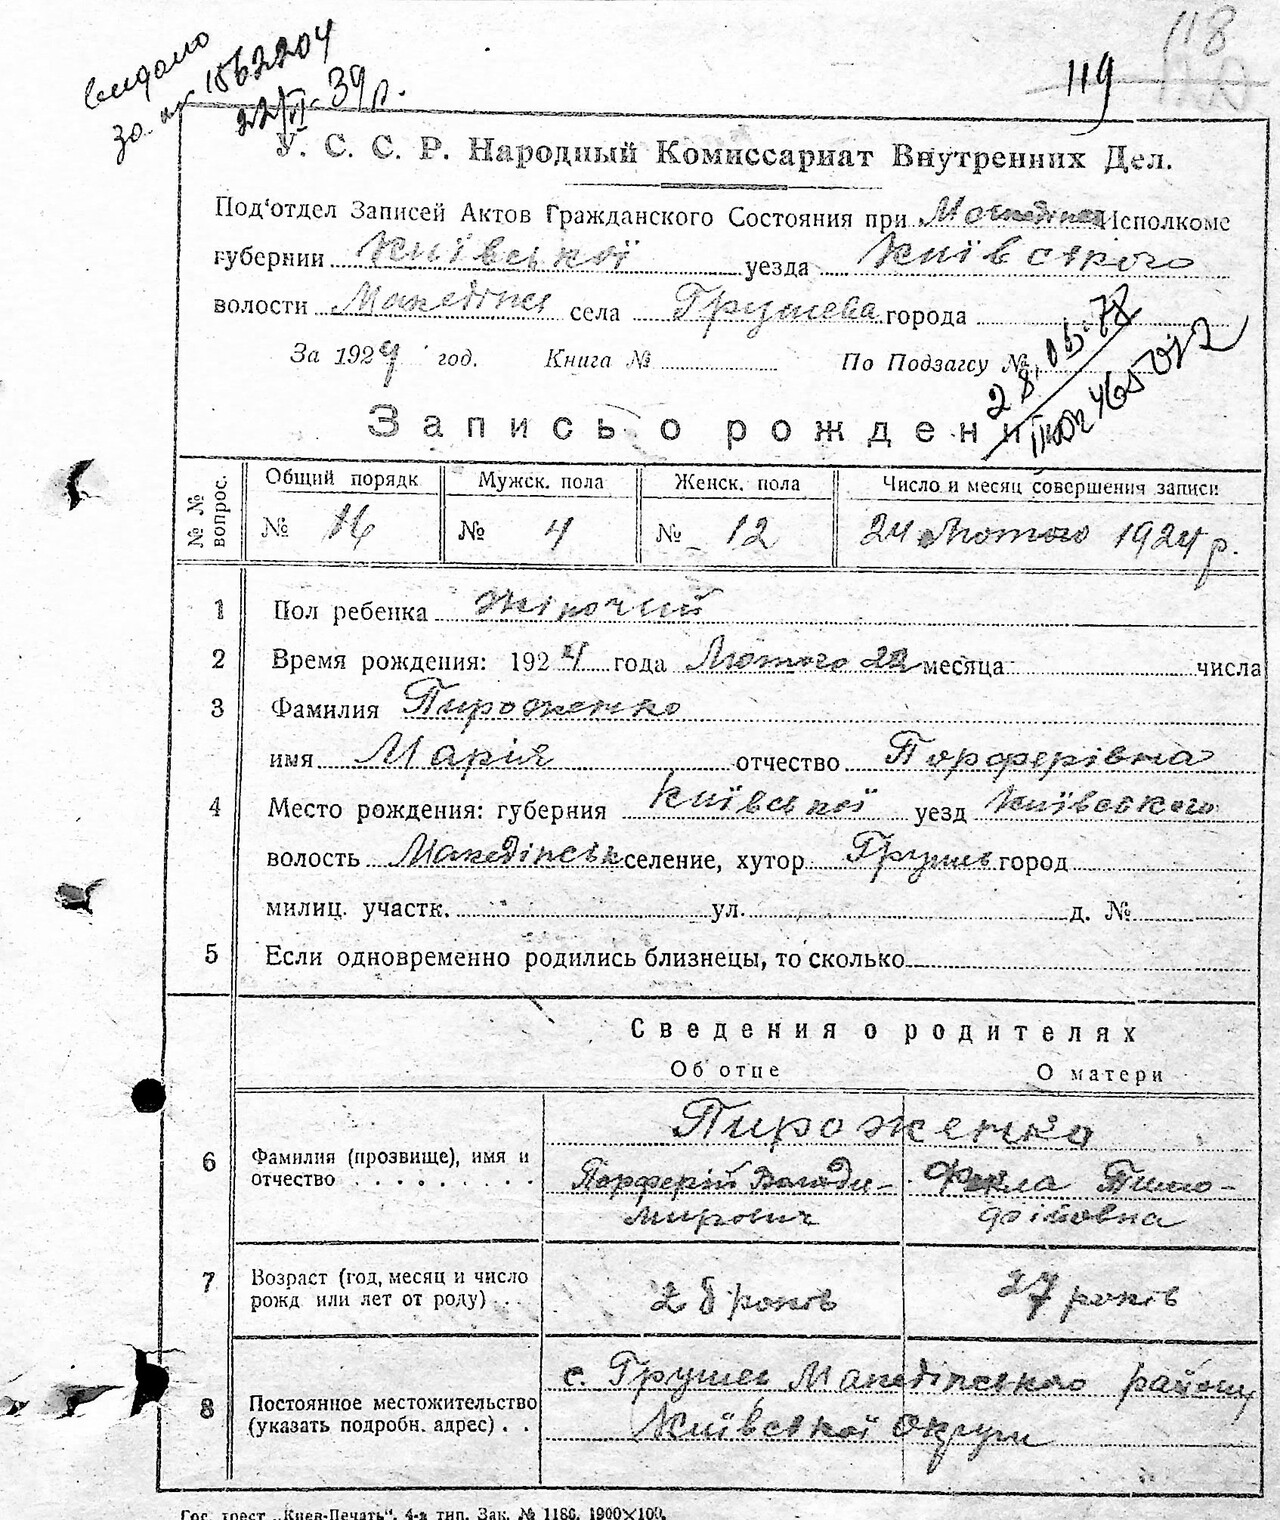 118
119
видано
за № 1562204
22/II-39 р.
У. С. С. Р. Народный Комиссариат Внутренних Дел.
Под'отдел Записей Актов Гражданского Состояния при Исполкоме
губернии Київської уезда Київского
волости села Грушева города
За 1924 год. Книга № По Подзагсу №
28.03.78
Запись о рождении
№ № вопрос. Общий порядк Мужск. пола Женск. пола Число и месяц совершения записи
№ 16 № 4 № 12 24 Лютого 1924 р.
1 Пол ребенка Жіночий
2 Время рождения: 1924 года Лютого 22 месяца числа
3 Фамилия Пироженко
имя Марія отчество Порферівна
4 Место рождения: губерния Київської уезд Київського
волость Македінськ селение, хутор Грушев город
милиц. участк. ул. д. №
5 Если одновременно родились близнецы, то сколько
Сведения о родителях
Об отце О матери
Пироженко
6 Фамилия (прозвище), имя и отчество Порферій Володи- Фекла Тимо-
мирович фіївна
7 Возраст (год, месяц и число рожд или лет от роду) 28 років 27 років
с. Грушев Македінського району
8 Постоянное местожительство (указать подробн. адрес) Київської Округи
Гос. трест „Киев-Печать“. 4-я тип. Зак. № 1186. 1900×100.